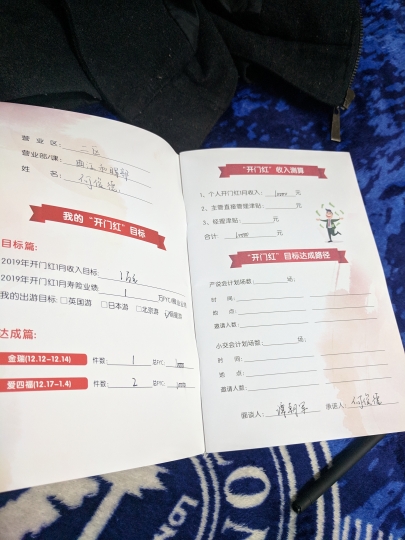 营 业 区： 二区
营业部/课：
姓 名： 何俊德
我的“开门红”目标
目标篇：
2019年开门红1月收入目标 1万元
2019年开门红1月寿险业绩 1 万FYC
我的出游目标：□英国游 □日本游 □北京游
达成篇：
金瑞(12.12-12.14) 件数： 1 总FYC:
爱四福(12.17-1.4) 件数： 2 总FYC:
“开门红”收入测算
1、个人开门红1月收入： 10000 元
2、主管直接管理津贴： 元
3、经理津贴： 元
合计： 10000 元
“开门红”目标达成路径
产说会计划场数： 场；
时 间：
地 点：
邀请人数：
小交会计划场数： 场；
时 间：
地 点：
邀请人数：
面谈人： 承诺人：何俊德
LON
ON